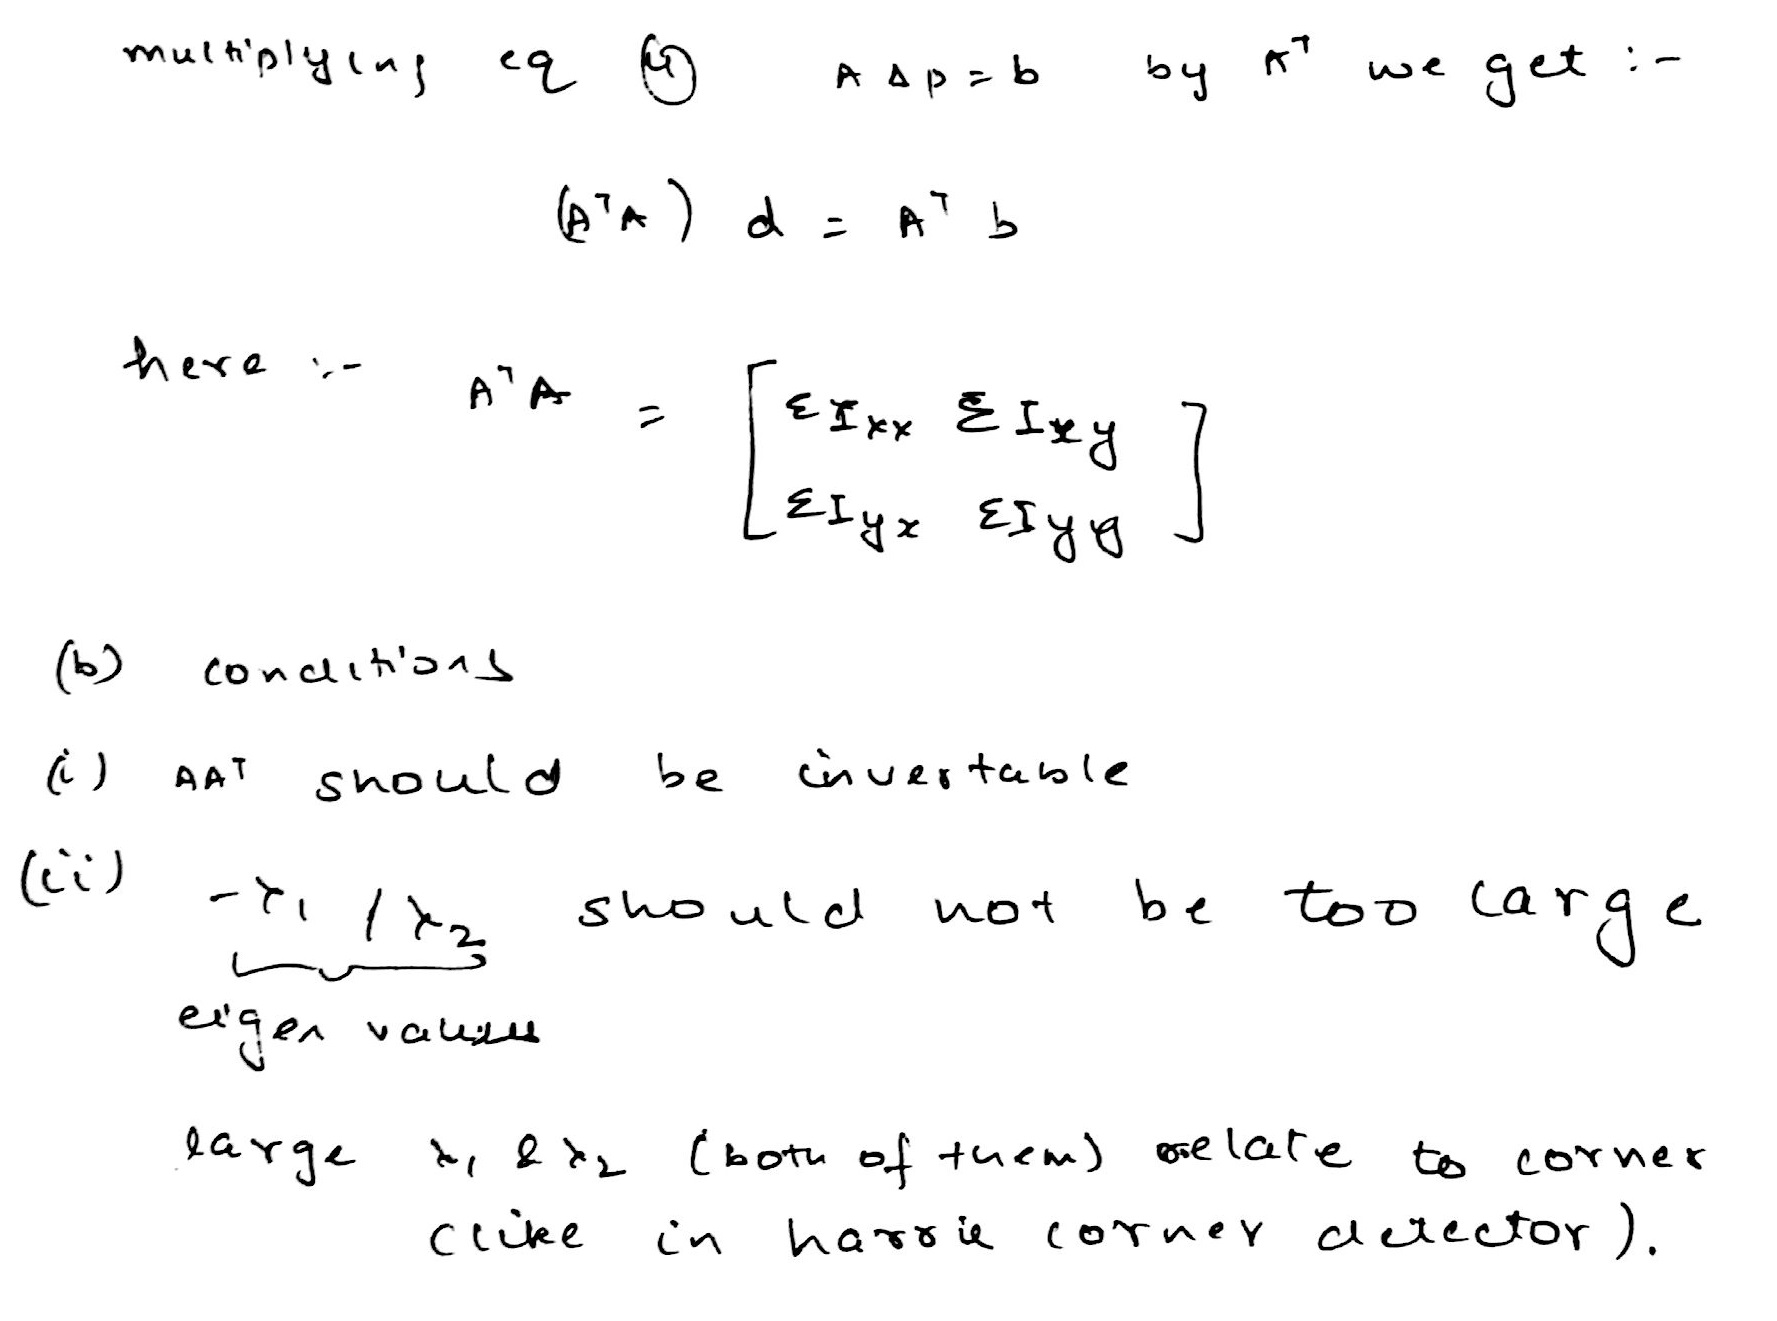 multiplying eq (4) A Δp = b by Aᵀ we get :-
(AᵀA) d = Aᵀ b
here :- AᵀA = [ΣIxx ΣIxy
ΣIyx ΣIyy]
(b) conditions
(i) AAᵀ should be invertable
(ii) -λ₁ / λ₂ should not be too large
eigen values
large λ₁ & λ₂ (both of them) relate to corner
(like in harris corner detector).